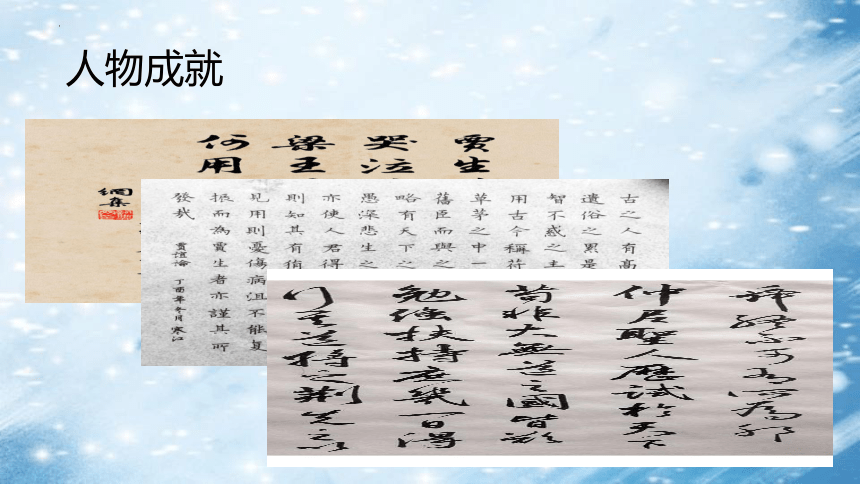 人物成就
賈生
哭泣
梁王
何用
古之人有高
遺俗之累是
智不惑之主
用古今稱苻
草茅之中一
舊臣而與之
略有天下之
愚深悲生之
亦使人君得
則知其有狷
見用則憂傷病沮不能復
振而為賈生者亦謹其所
發哉
賈誼論 丁酉年冬月 寒江
舜終不可有所為耶
仲尼聖人歷試於天下
苟非大無道之國皆欲
勉強扶持庶幾一日得
行其道將之荊先之以